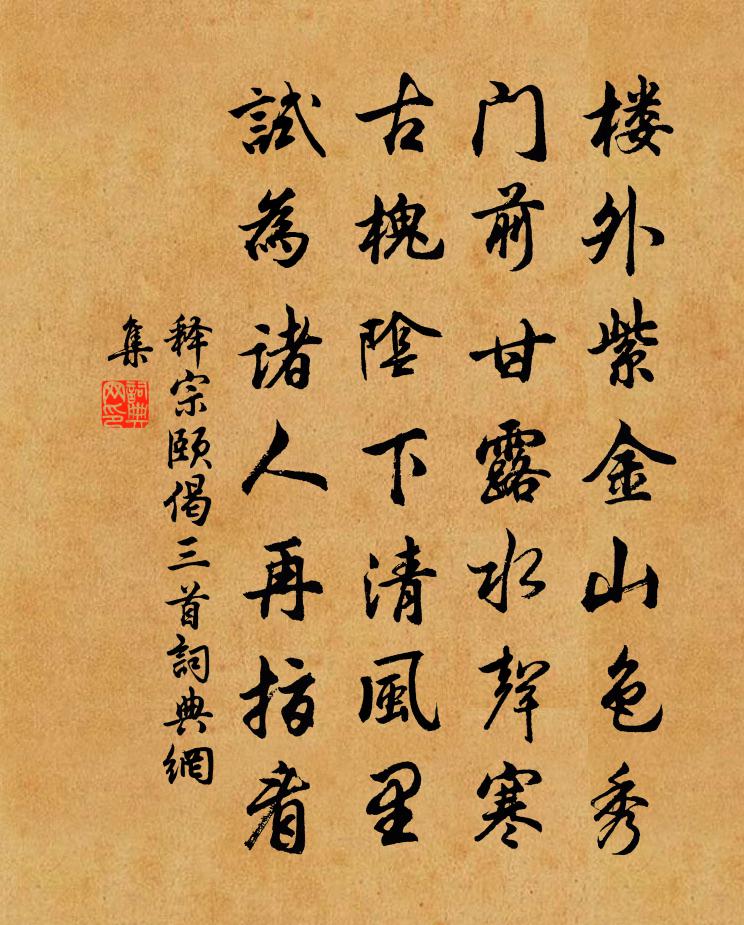 楼外紫金山色秀
门前甘露水聲寒
古槐陰下清風里
試為諸人再指看
释宗颐偈三首詞典網
集
詞典网印